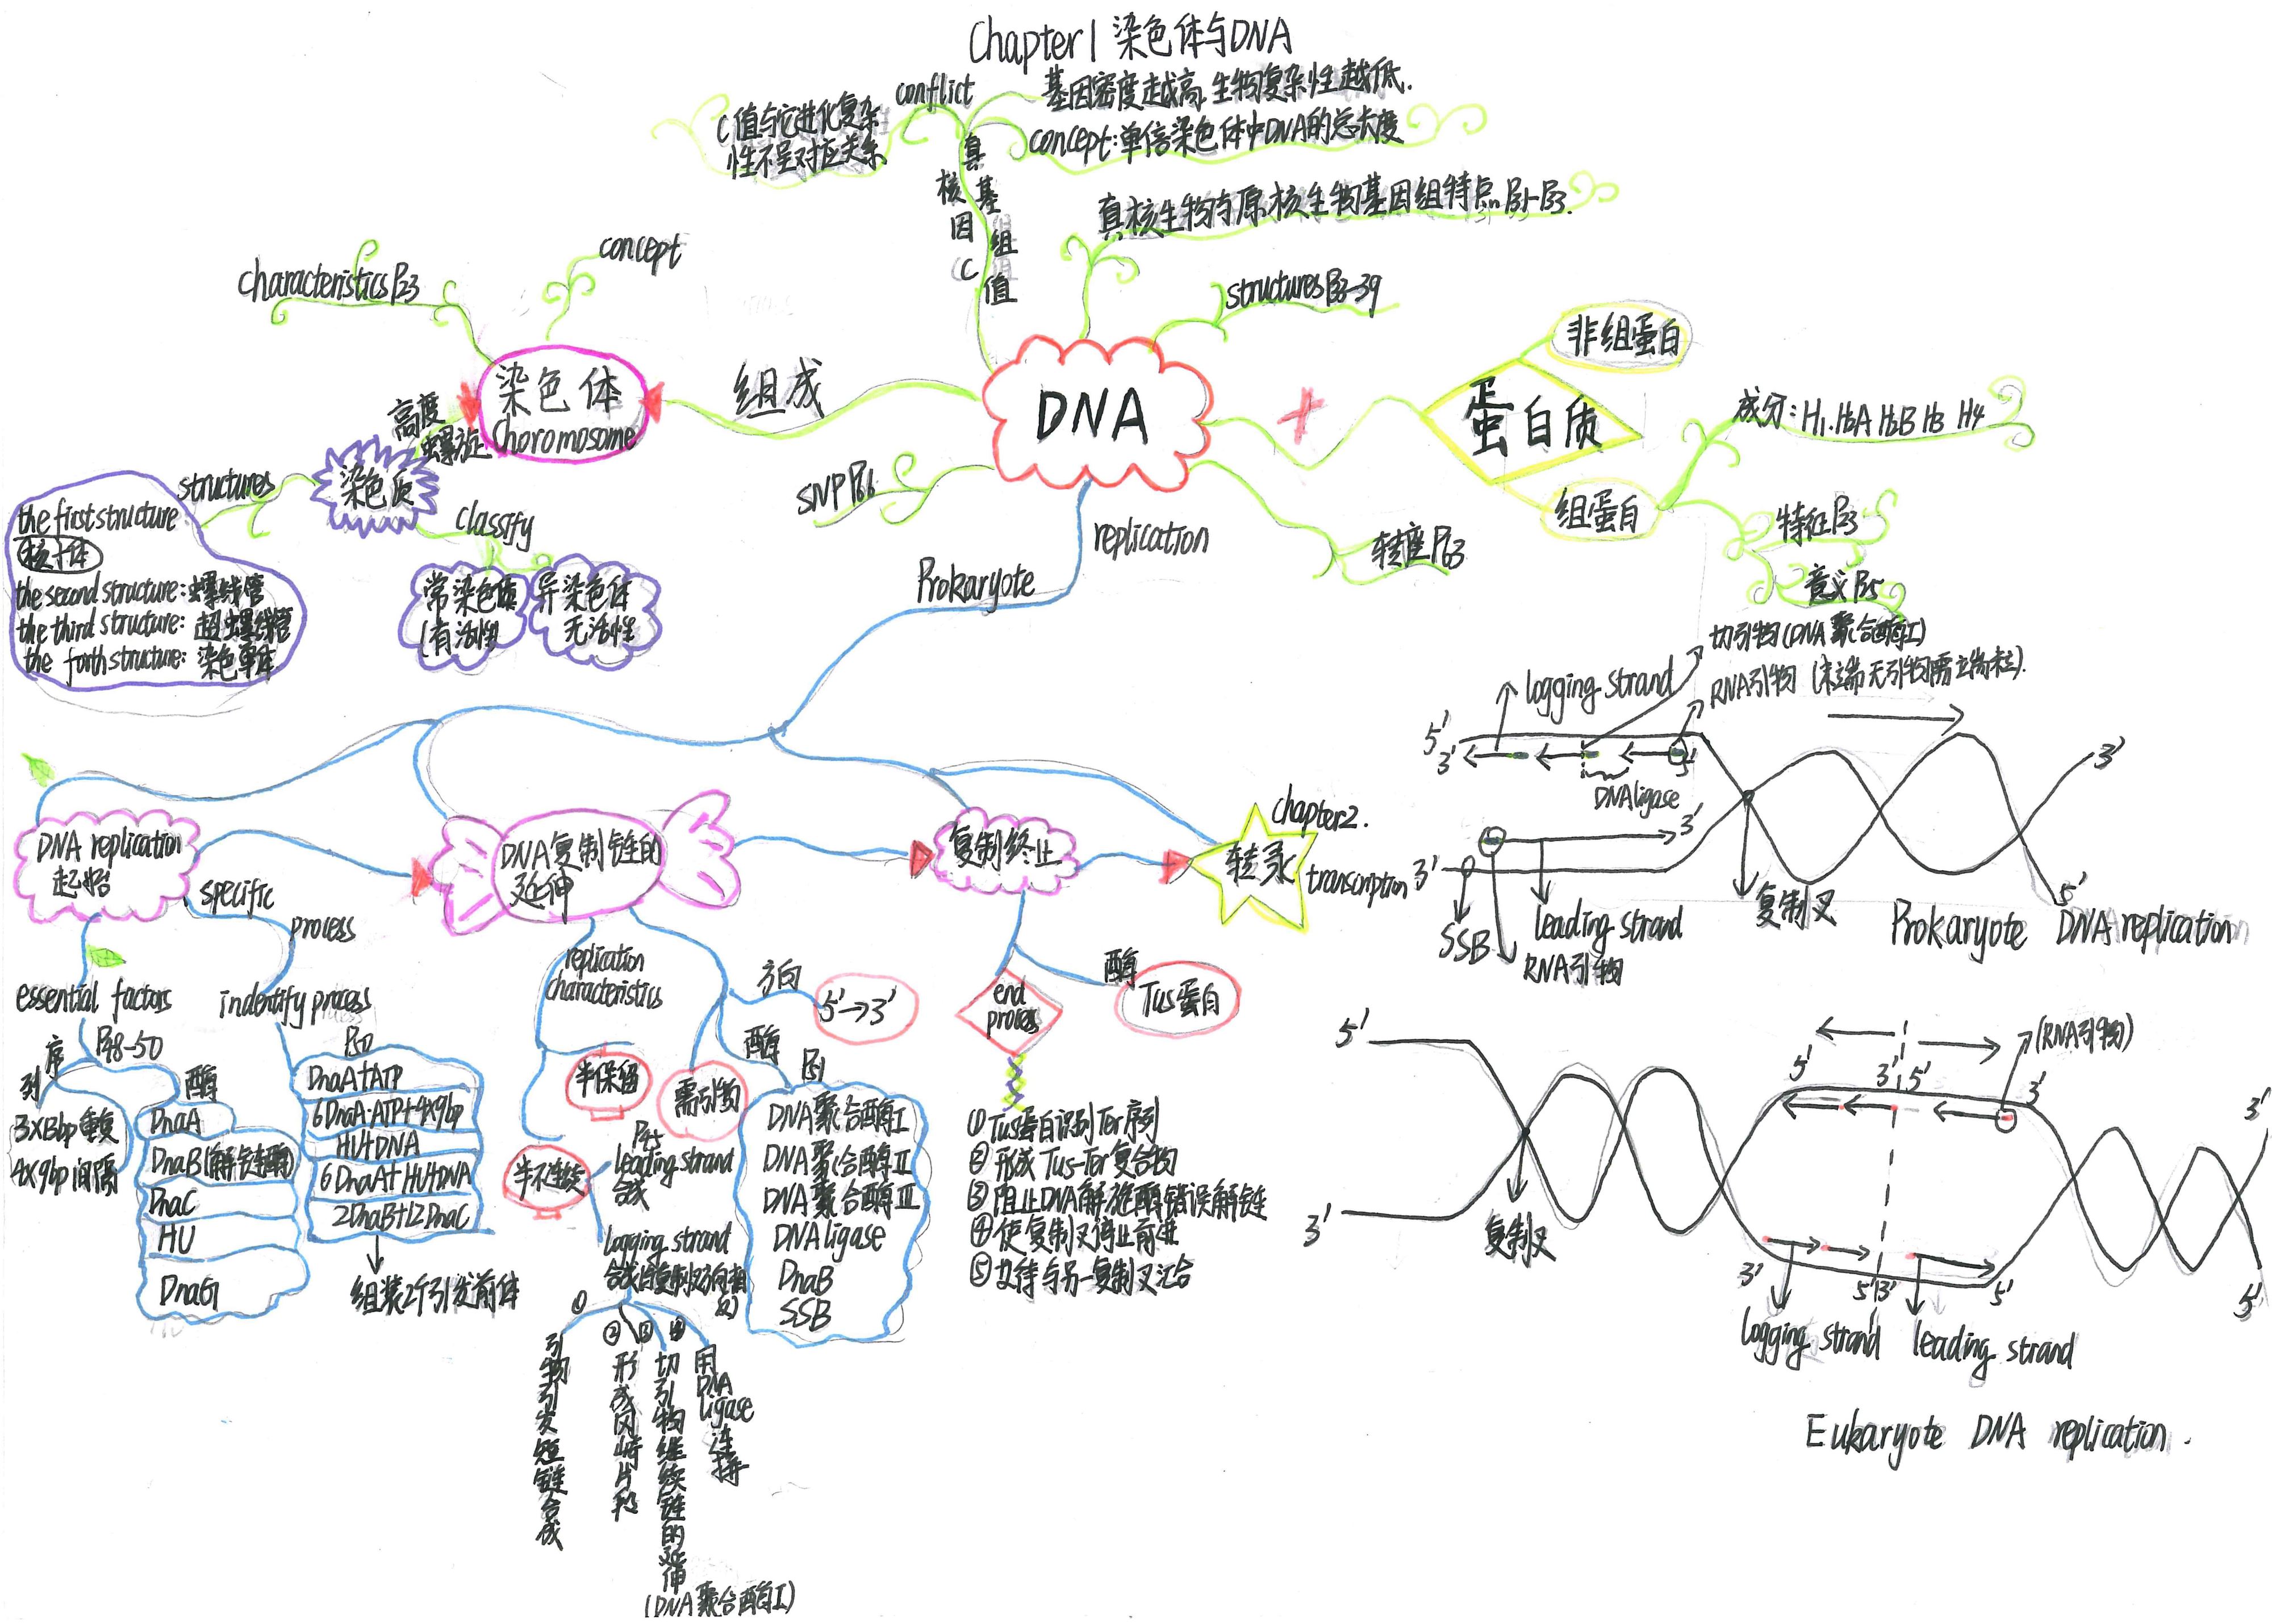 Chapter1 染色体与DNA
conflict
C值与它进化复杂
性不呈对应关系
基因密度越高,生物复杂性越低.
concept:单倍染色体中DNA的总长度
真核基因组C值
真核生物与原核生物基因组特点P31-P33.
structures P33-39
characteristics P23
concept
染色体
Choromosome
组成
DNA
+
蛋白质
非组蛋白
组蛋白
成分: H1.H2A H2B H3 H4
特征P23
意义P25
高度
螺旋
染色质
structures
the first structure
核小体
the second structure: 螺线管
the third structure: 超螺线管
the forth structure: 染色单体
classify
常染色质
(有活性)
异染色体
无活性
SNP P66
转座P63
replication
Prokaryote
DNA replication
起始
specific
process
essential factors
P48-50
序列
3X13bp重复
4X9bp间隔
酶
DnaA
DnaB(解链酶)
DnaC
HU
DnaG
indentify process
P50
DnaA+ATP
6DnaA·ATP+4X9bp
HU+DNA
6DnaA+HU+DNA
2DnaB+12DnaC
组装2个引发前体
DNA复制链的
延伸
replication
characteristics
半保留
半不连续
需引物
方向
5'→3'
酶
P51
DNA聚合酶I
DNA聚合酶II
DNA聚合酶III
DNA ligase
DnaB
SSB
P45
leading strand
合成
logging strand
合成与复制叉方向相
反)
①引物引发短链合成
②形成冈崎片段
③切引物继续链的延伸
(DNA聚合酶I)
④用DNA ligase连接
复制终止
end
process
酶
Tus蛋白
①Tus蛋白识别Ter序列
②形成Tus-Ter复合物
③阻止DNA解旋酶错误解链
④使复制叉停止前进
⑤等待与另一复制叉汇合
chapter2.
转录
transcription
切引物(DNA聚合酶I)
RNA引物 (末端无引物需端粒).
logging strand
5'
3'
5'
3'
DNA ligase
3'
3'
5'
SSB
RNA引物
leading strand
复制叉
Prokaryote DNA replication
5'
3'
复制叉
5'
3'
5'
3'
(RNA引物)
3'
5'
3'
5'
3'
5'
logging strand
leading strand
Eukaryote DNA replication.